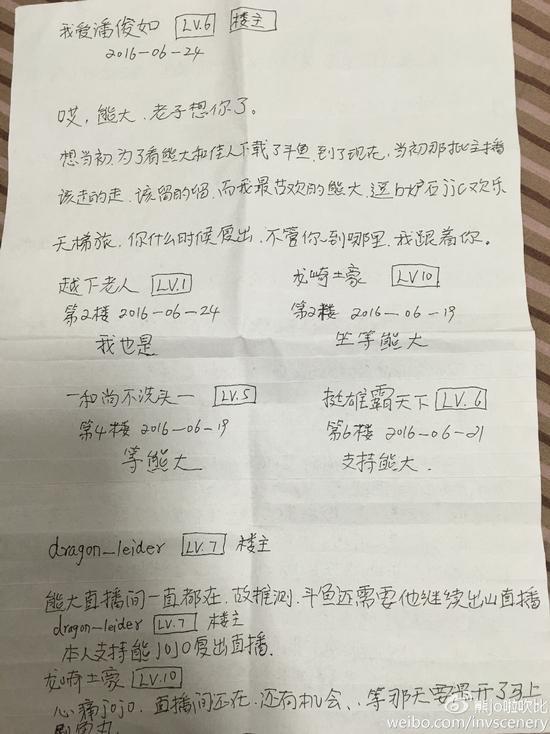 我爱潘俊如 LV.6 楼主
2016-06-24
哎,熊大,老子想你了。
想当初为了看熊大和佳人下载了斗鱼,到了现在,当初那批主播
该走的走,该留的留,而我最喜欢的熊大,逗b炉石jjc欢乐
天梯旅,你什么时候复出,不管你到哪里,我跟着你。
越下老人 LV.1
第2楼 2016-06-24
我也是
龙崎土豪 LV10
第2楼 2016-06-19
坐等熊大
一和尚不洗头一 LV.5
第4楼 2016-06-19
等熊大
挺雄霸天下 LV.6
第6楼 2016-06-21
支持熊大.
dragon_leider LV.7 楼主
熊大直播间一直都在,故推测,斗鱼还需要他继续出山直播
dragon_leider LV.7 楼主
本人支持熊JOJO复出直播.
龙崎土豪 LV.10
心痛jojo,直播间还在,还有机会、,等那天要是开了马上
熊jo啦吹比
weibo.com/invscenery